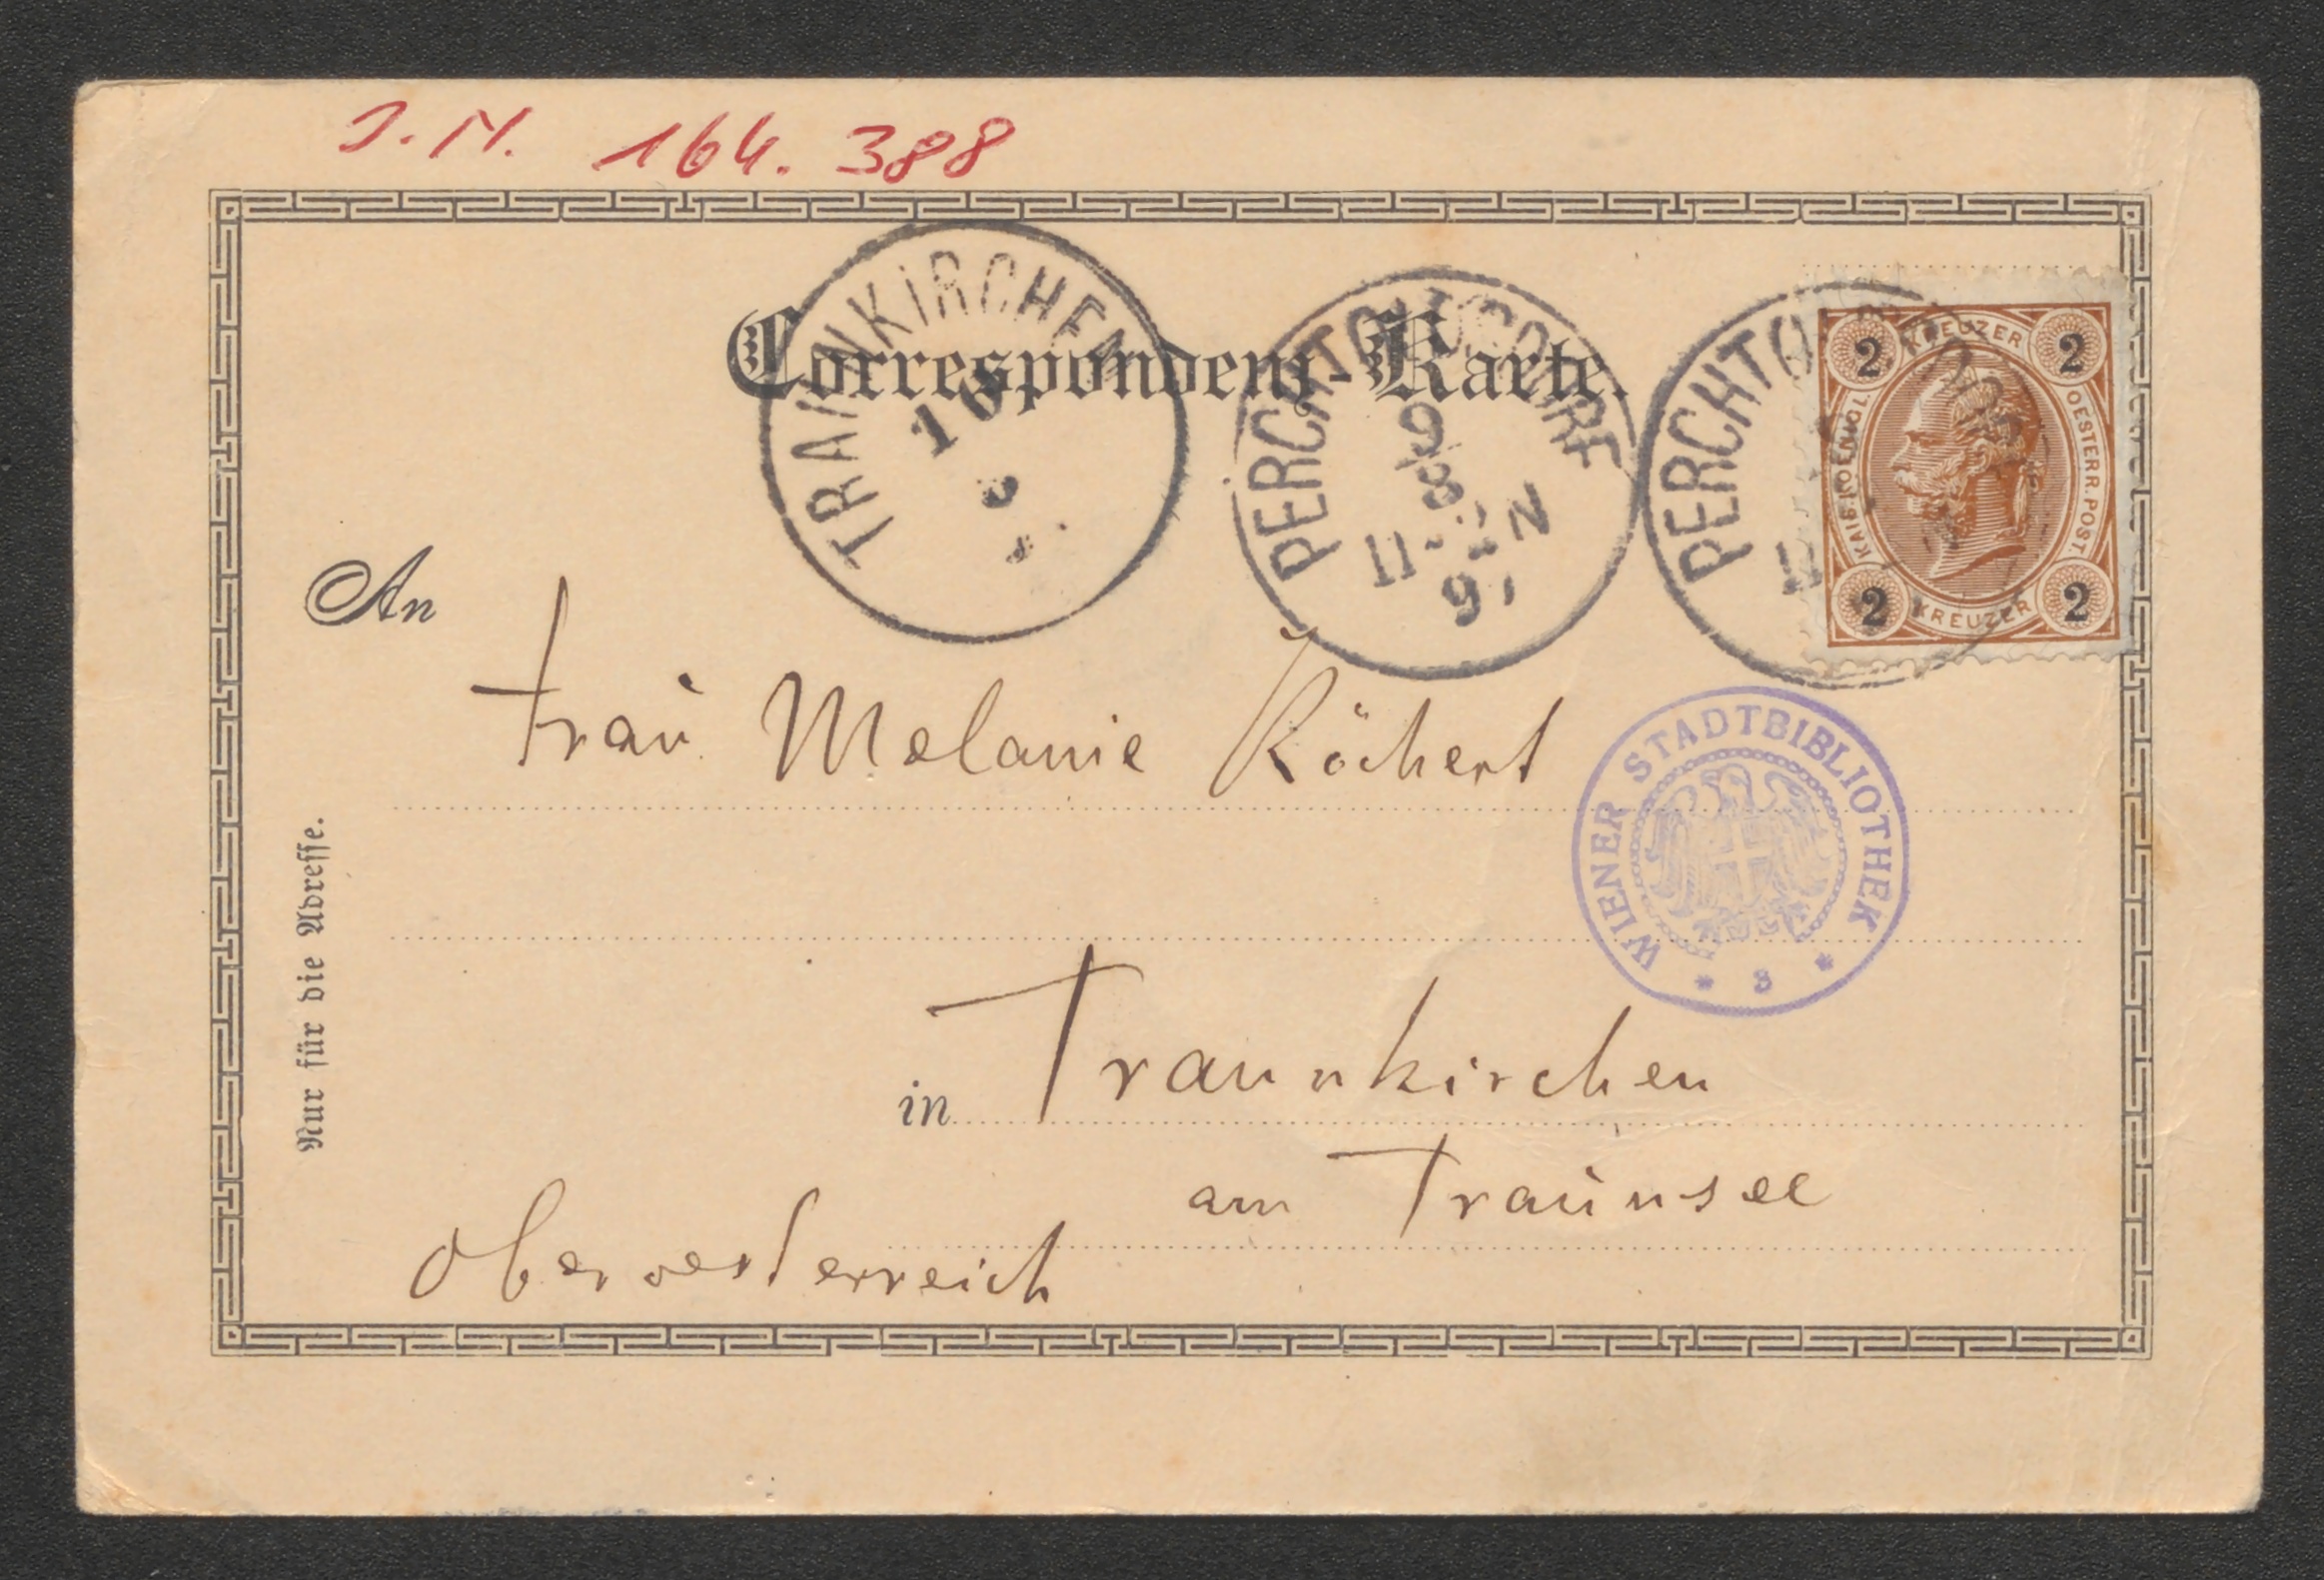 J.N. 164.388
Correspondenz-Karte.
TRAUNKIRCHEN
10
8
PERCHTOLDSDORF
9
8
11-12 N
97
PERCHTOLDSDORF
11
2 KREUZER 2
KAIS. KOENIGL. OESTERR. POST.
2 KREUZER 2
An
Frau Melanie Köchert
WIENER STADTBIBLIOTHEK
* 3 *
in Traunkirchen
am Traunsee
Oberoesterreich
Nur für die Adresse.